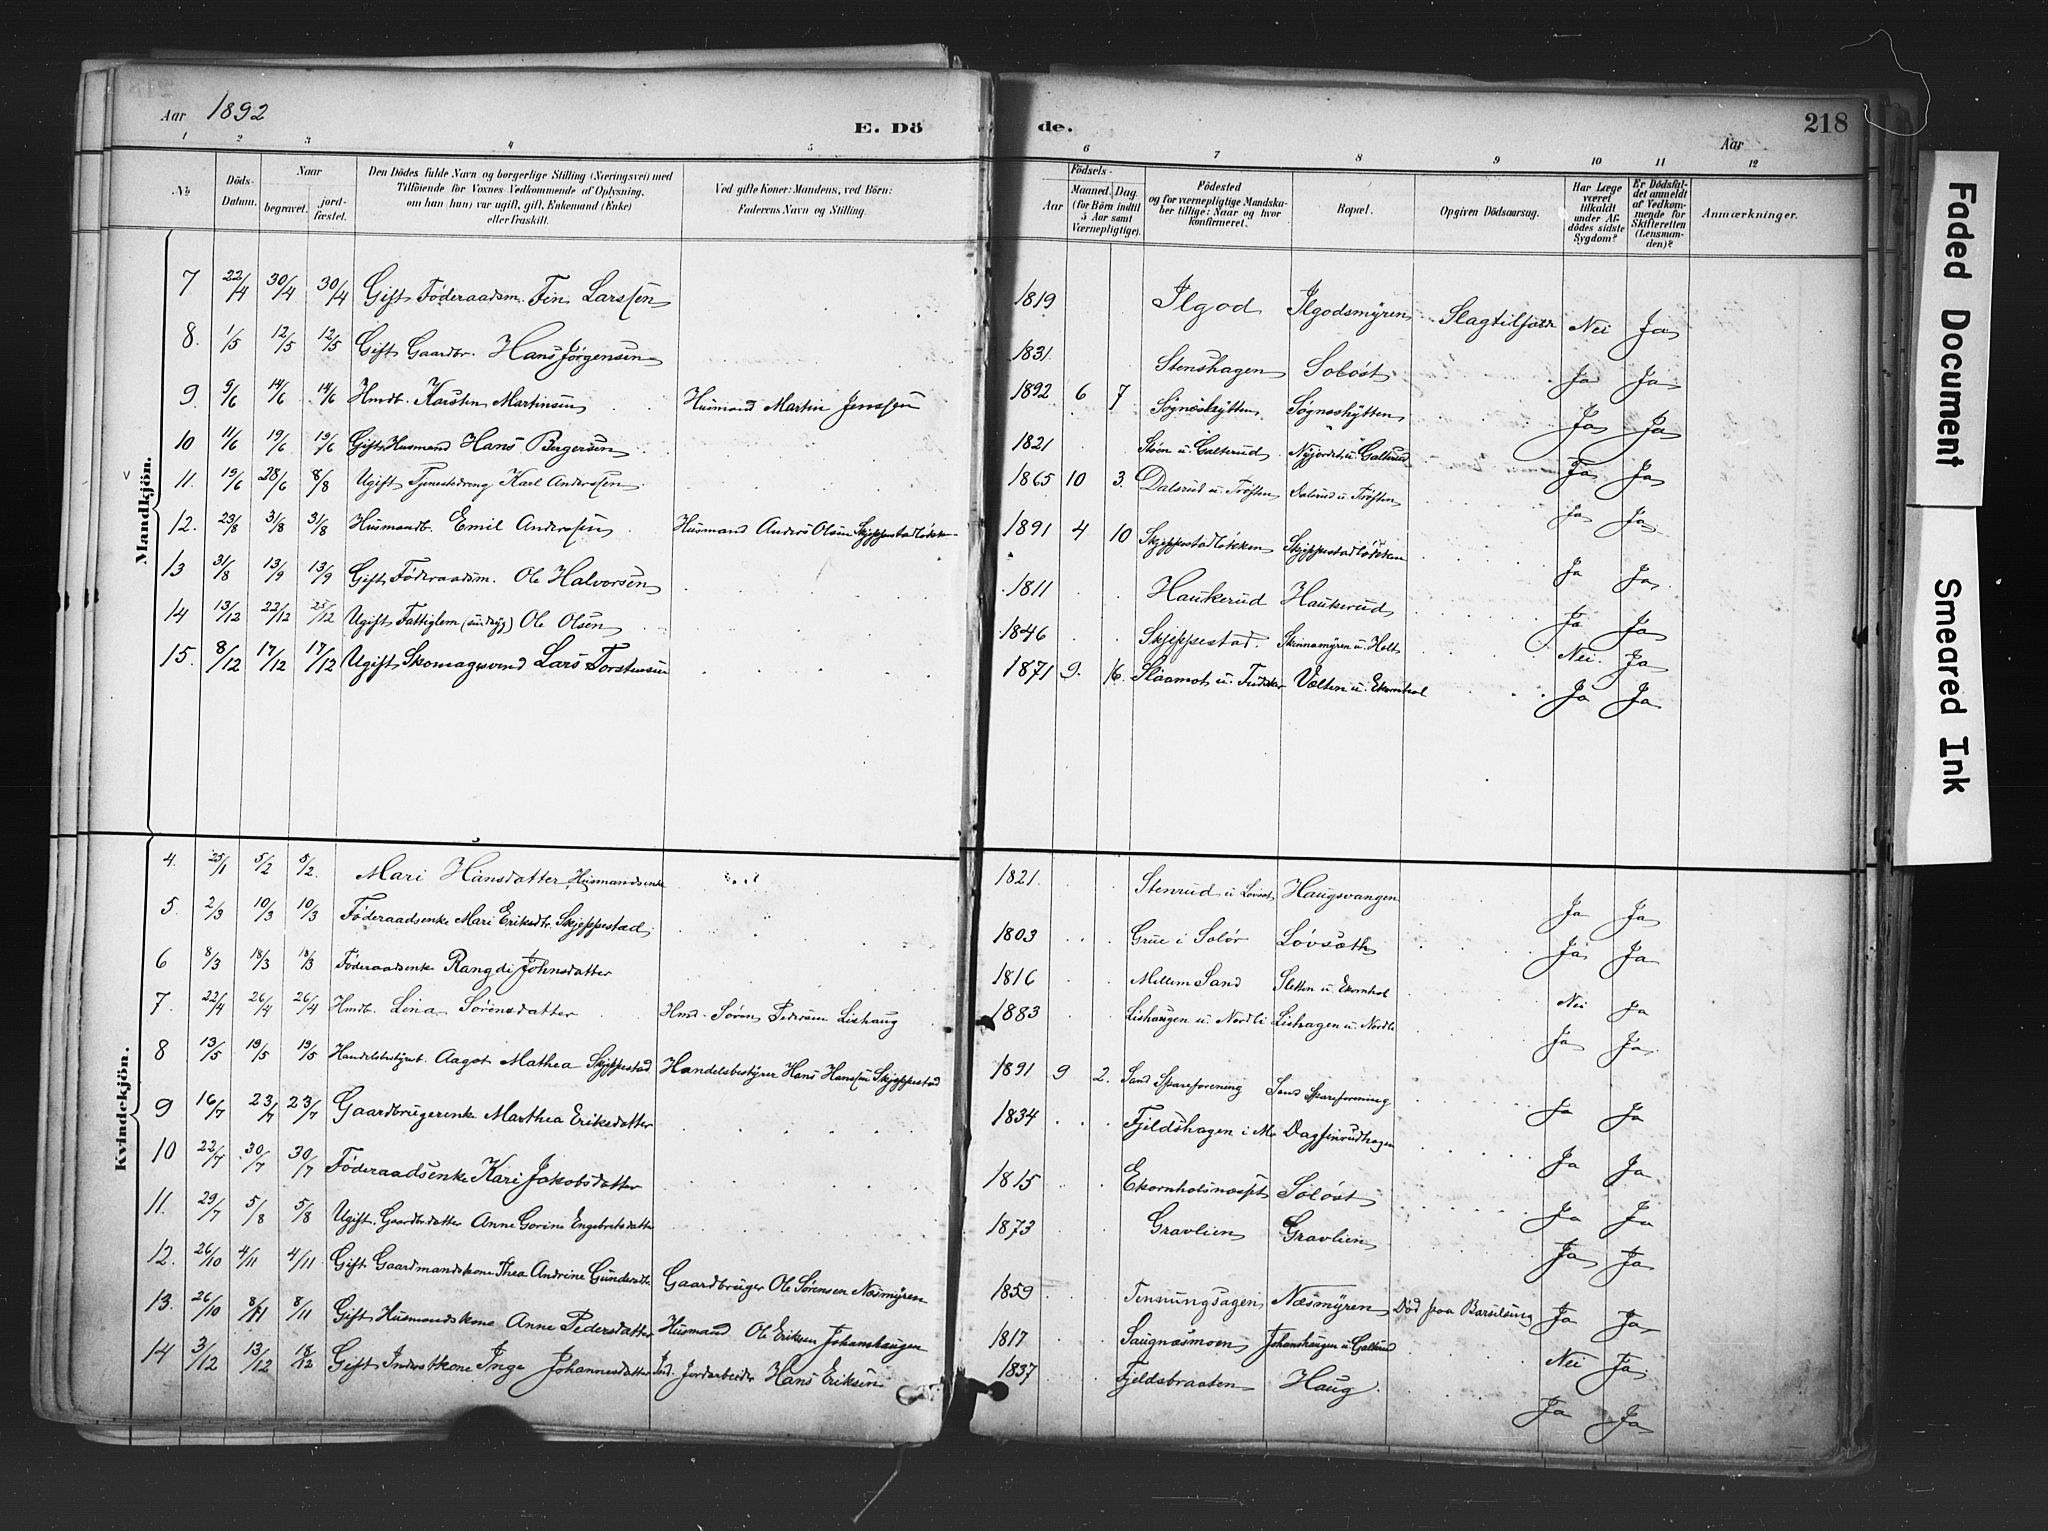 Aar 1892
E. Dö
de.
218
Aar
1 2 3 4 5 6 7 8 9 10 11 12
No.
Döds-Datum.
Naar
begravet.
jord-fæstet.
Den Dödes fulde Navn og borgerlige Stilling (Næringsvei) med
Tilföiende for Voxnes Vedkommende af Oplysning,
om han (hun) var ugift, gift, Enkemand (Enke)
eller fraskilt.
Ved gifte Koner: Mandens, ved Börn:
Faderens Navn og Stilling.
Födsels-
Aar
Maaned. Dag
(for Börn indtil
5 Aar samt
Værnepligtige).
Födested
og for værnepligtige Mandska-
ber tillige: Naar og hvor
konfirmeret.
Bopæl.
Opgiven Dödsaarsag.
Har Læge
været
tilkaldt
under Af-
dödes sidste
Sygdom?
Er Dödsfal-
det anmeldt
af Vedkom-
mende for
Skifteretten
(Lensman-
den)?
Anmærkninger.
Mandkjön.
7 22/4 30/4 30/4 Gift Föderaadsm. Fin Larssen 1819 Ilgod Ilgodsmyren Slagtilfælde Nei Ja
8. 1/5 12/5 12/5 Gift Gaardbr. Hans Jørgensen 1831. Stenshagen Soløst Ja Ja
9. 9/6 14/6 14/6 Hmdb. Karsten Martinsen Husmand Martin Jenssen 1892 6 7 Søgneshytten Søgneshytten Ja Ja
10 11/6 19/6 19/6 Gift Husmand Hans Bergersen 1821 Støen u. Galterud Nyjordet u. Galterud Ja Ja
11. 19/6 28/6 8/8 Ugift Tjenestedreng Karl Anderssen 1865 10 3. Dalsrud u. Trøften Dalsrud u. Trøften Ja Ja
12. 23/8 31/8 31/8 Husmandb. Emil Anderssen Husmand Anders Olsen Skjeppestadløkken 1891 4 10 Skjeppestadløkken Skjeppestadløkken Ja Ja
13 31/8 13/9 13/9 Gift Föderaadsm. Ole Halvorsen 1811 Haukerud Haukerud Ja Ja
14 13/12 22/12 25/12 Ugift Fattiglem (sindsyg) Ole Olsen 1846 Skjeppestad. Skinnamyren u. Holt Nei. Ja
15. 8/12 17/12 17/12 Ugift Skomagersvend Lars Torstensen 1871 9. 16. Slaamot u. Vælten u. Ekornhol Ja Ja
Kvindekjön.
4. 25/1 5/2 5/2. Mari Hansdatter, Husmandsenke 1821. Stenrud u. Løvset Haugsvangen Ja Ja
5. 2/3 10/3 10/3 Föderaadsenke Mari Eriksdtr. Skjeppestad 1803 Grue i Solør Løvsæth Ja Ja
6 8/3 18/3 18/3 Föderaadsenke Rangdi Johnsdatter 1816 Mellem Sand Sletten u. Ekornhol Nei Ja
7. 22/4 26/4 26/4 Hmdb. Lina Sørensdatter Hmd. Søren Pedersen Lishaug 1883 Lishaugen u. Nordli Lishagen u. Nordli Ja Ja
8 13/5 19/5 19/5 Handelsbestyrerb. Aagot Mathea Skjeppestad Handelsbestyrer Hans Hanssen Skjeppestad 1891 9 2. Sand Spareforening Sand Spareforening Ja Ja
9 16/7 23/7 23/7 Gaardbrugerenke Marthea Eriksdatter 1834 Fjeldshagen i Mo Dagfinrudhagen Ja Ja
10 22/7 30/7 30/7 Föderaadsenke Kari Jakobsdatter 1815 Ekornholsnæsset Soløst Ja Ja
11. 29/7 5/8 5/8 Ugift. Gaardbr.datter Anne Gorine Engebretsdatter 1873 Gravlien Gravlien Ja Ja
12. 26/10 4/11 4/11 Gift Gaardmandskone Thea Andrine Gundersdtr. Gaardbruger Ole Sørensen Næsmyren 1859 Næsmyren Død paa Barselseng Ja Ja
13. 26/10 8/11 8/11 Gift Husmandskone Anne Pedersdatter Husmand Ole Eriksen Johanshaugen 1817 Saugnæsmoen Johanshaugen u. Galterud Nei Ja
14 3/12 13/12 18/12 Gift Inderstkone Inge Johannesdatter Ind. Jordarbeider Hans Eriksen 1837 Fjeldsbraaten Haug. Ja Ja
Faded Document
Smeared Ink